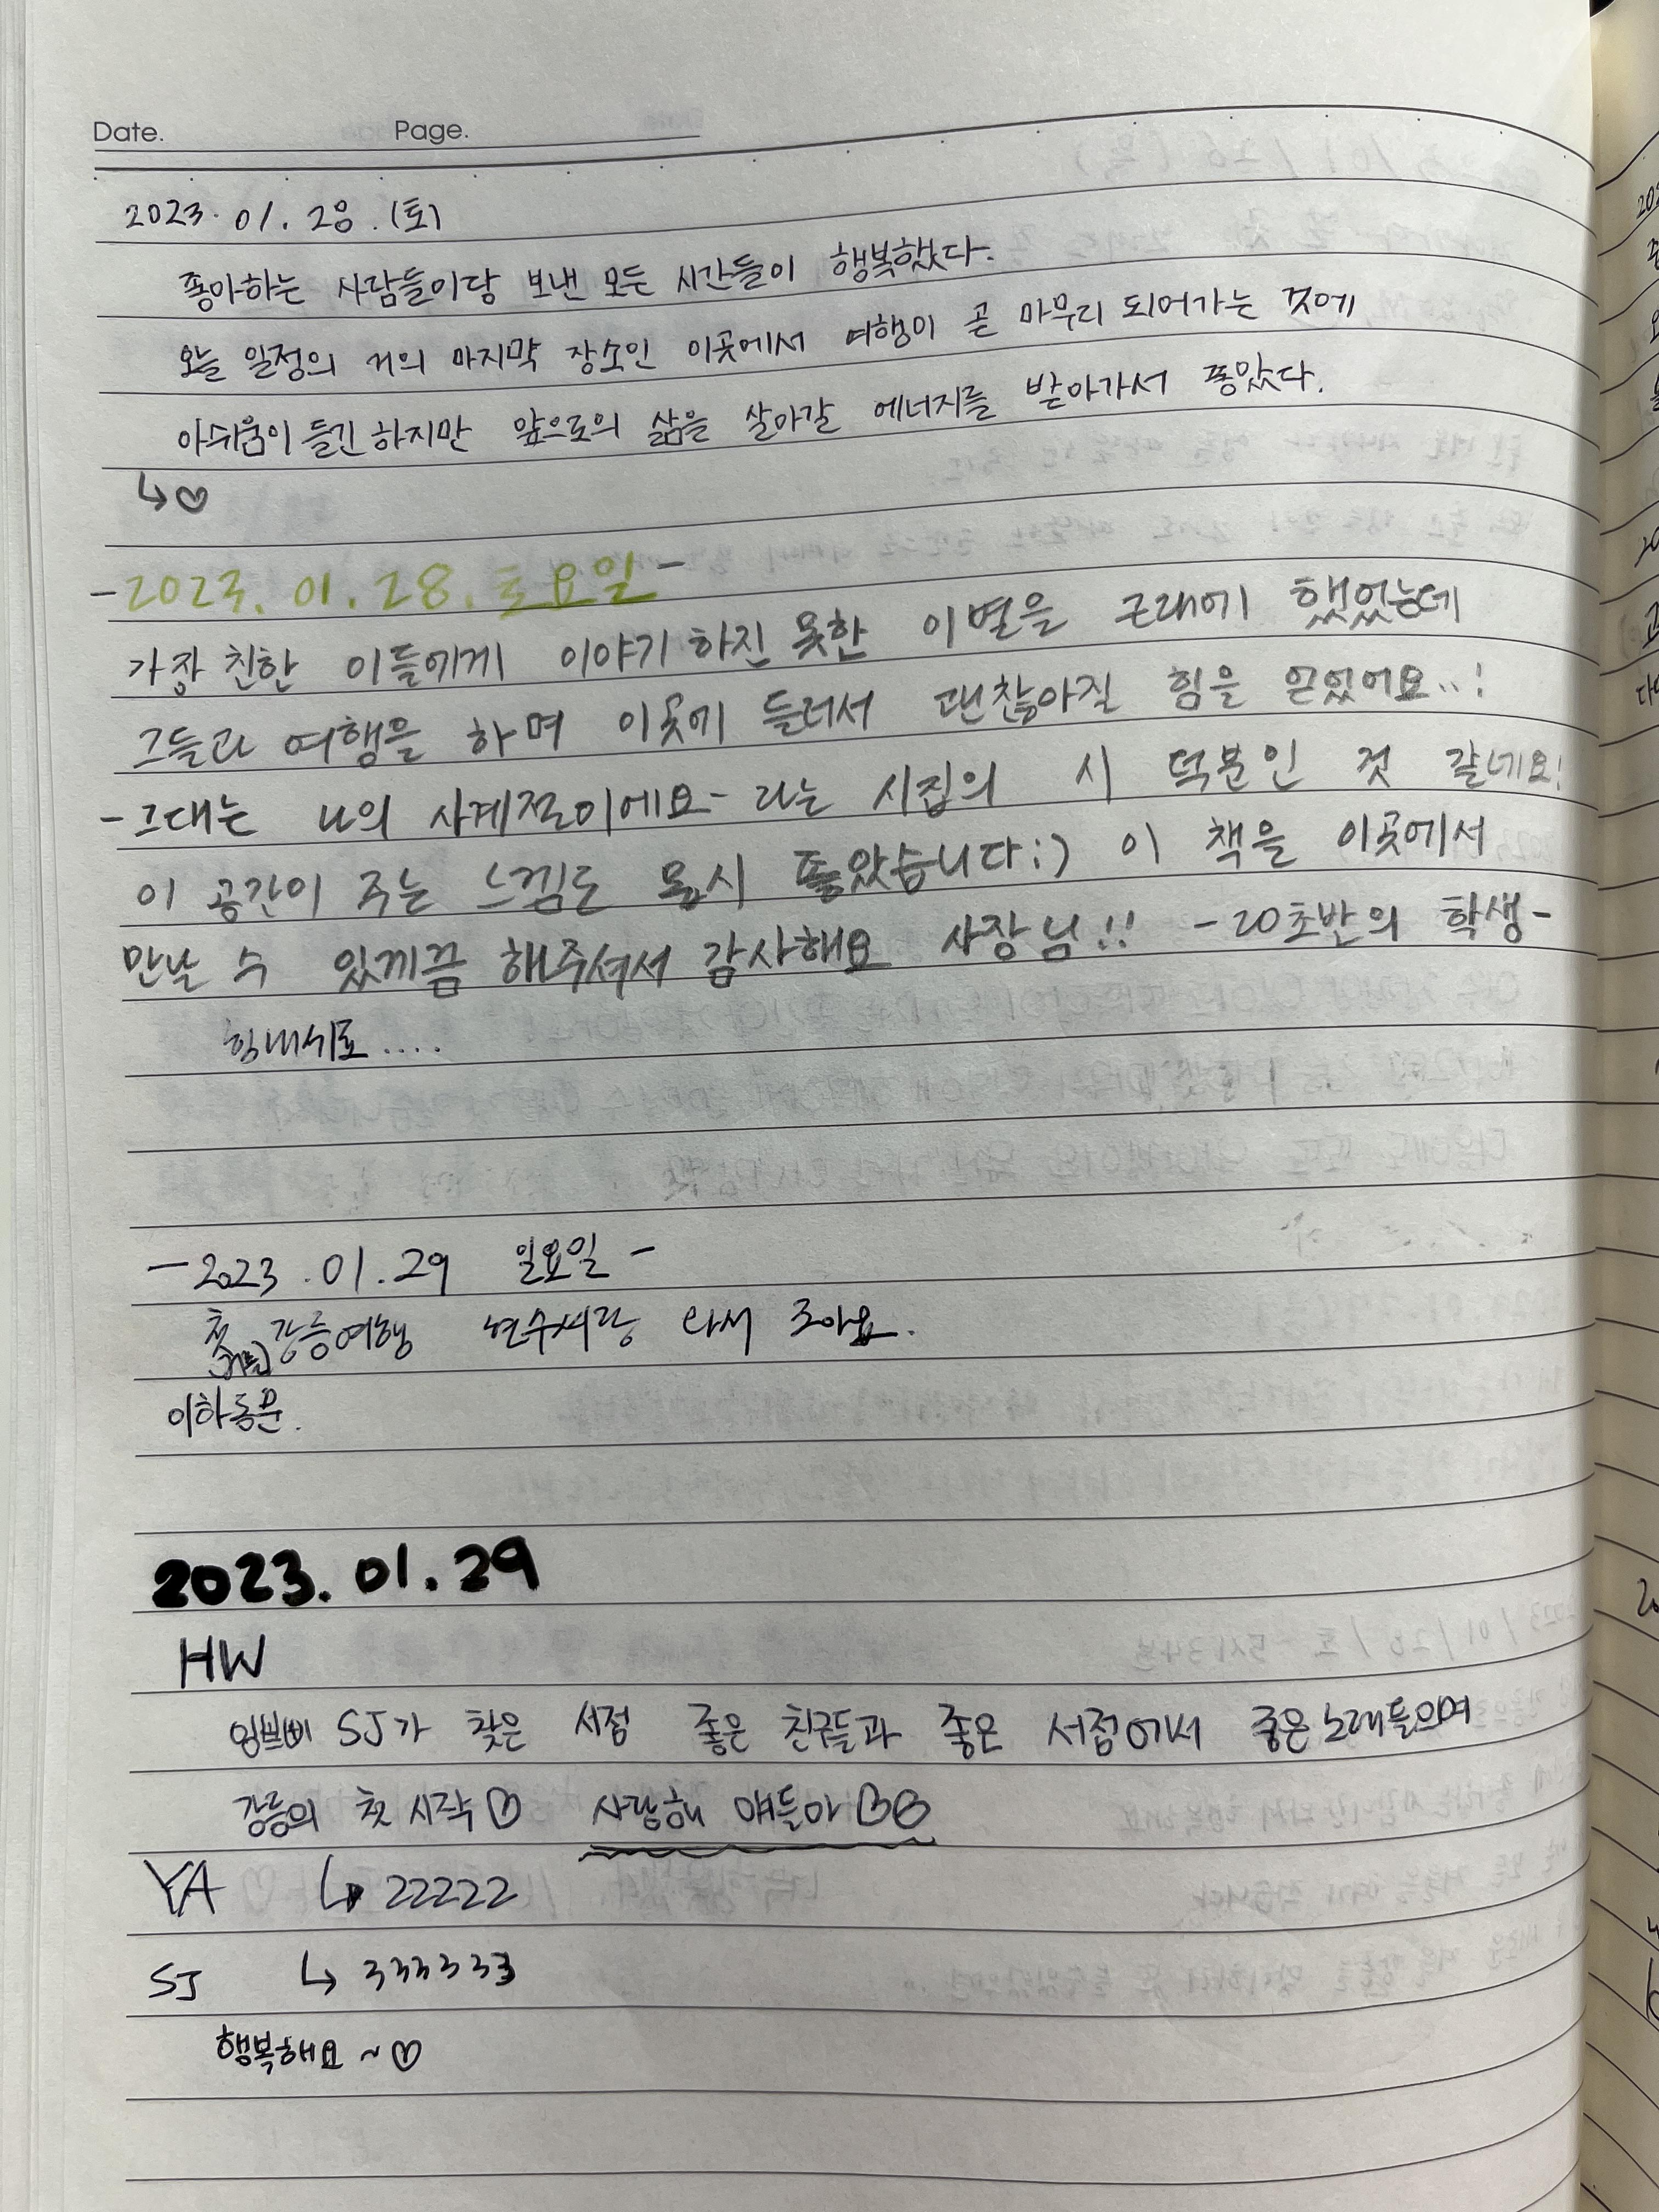 Date. Page.
2023. 01. 28. (토)
좋아하는 사람들이당 보낸 모든 시간들이 행복했다.
오늘 일정의 거의 마지막 장소인 이곳에서 여행이 곧 마무리 되어가는 것에
아쉬움이 들긴 하지만 앞으로의 삶을 살아갈 에너지를 받아가서 좋았다.
↳♡
-2023. 01. 28. 토요일-
가장 친한 이들에게 이야기 하진 못한 이별을 근래에 했었는데
그들과 여행을 하며 이곳에 들러서 괜찮아질 힘을 얻었어요..!
-그대는 나의 사계절이에요- 라는 시집의 시 덕분인 것 같네요!
이 공간이 주는 느낌도 몹시 좋았습니다:) 이 책을 이곳에서
만날 수 있게끔 해주셔서 감사해요 사장님!! -20초반의 학생-
힘내시죠....
-2023.01.29 일요일-
첫 강릉여행 와서 조아요.
(겨울)
이하동문.
2023. 01. 29
HW
SJ가 찾은 서점 좋은 친구들과 좋은 서점에서 좋은 노래들으며
강릉의 첫 시작♡ 사랑해 얘들아♡♡
YA ↳ 22222
SJ ↳ 333333
행복해요~♡